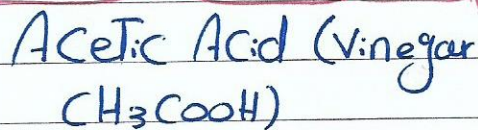 Acetic Acid (Vinegar
CH3COOH)